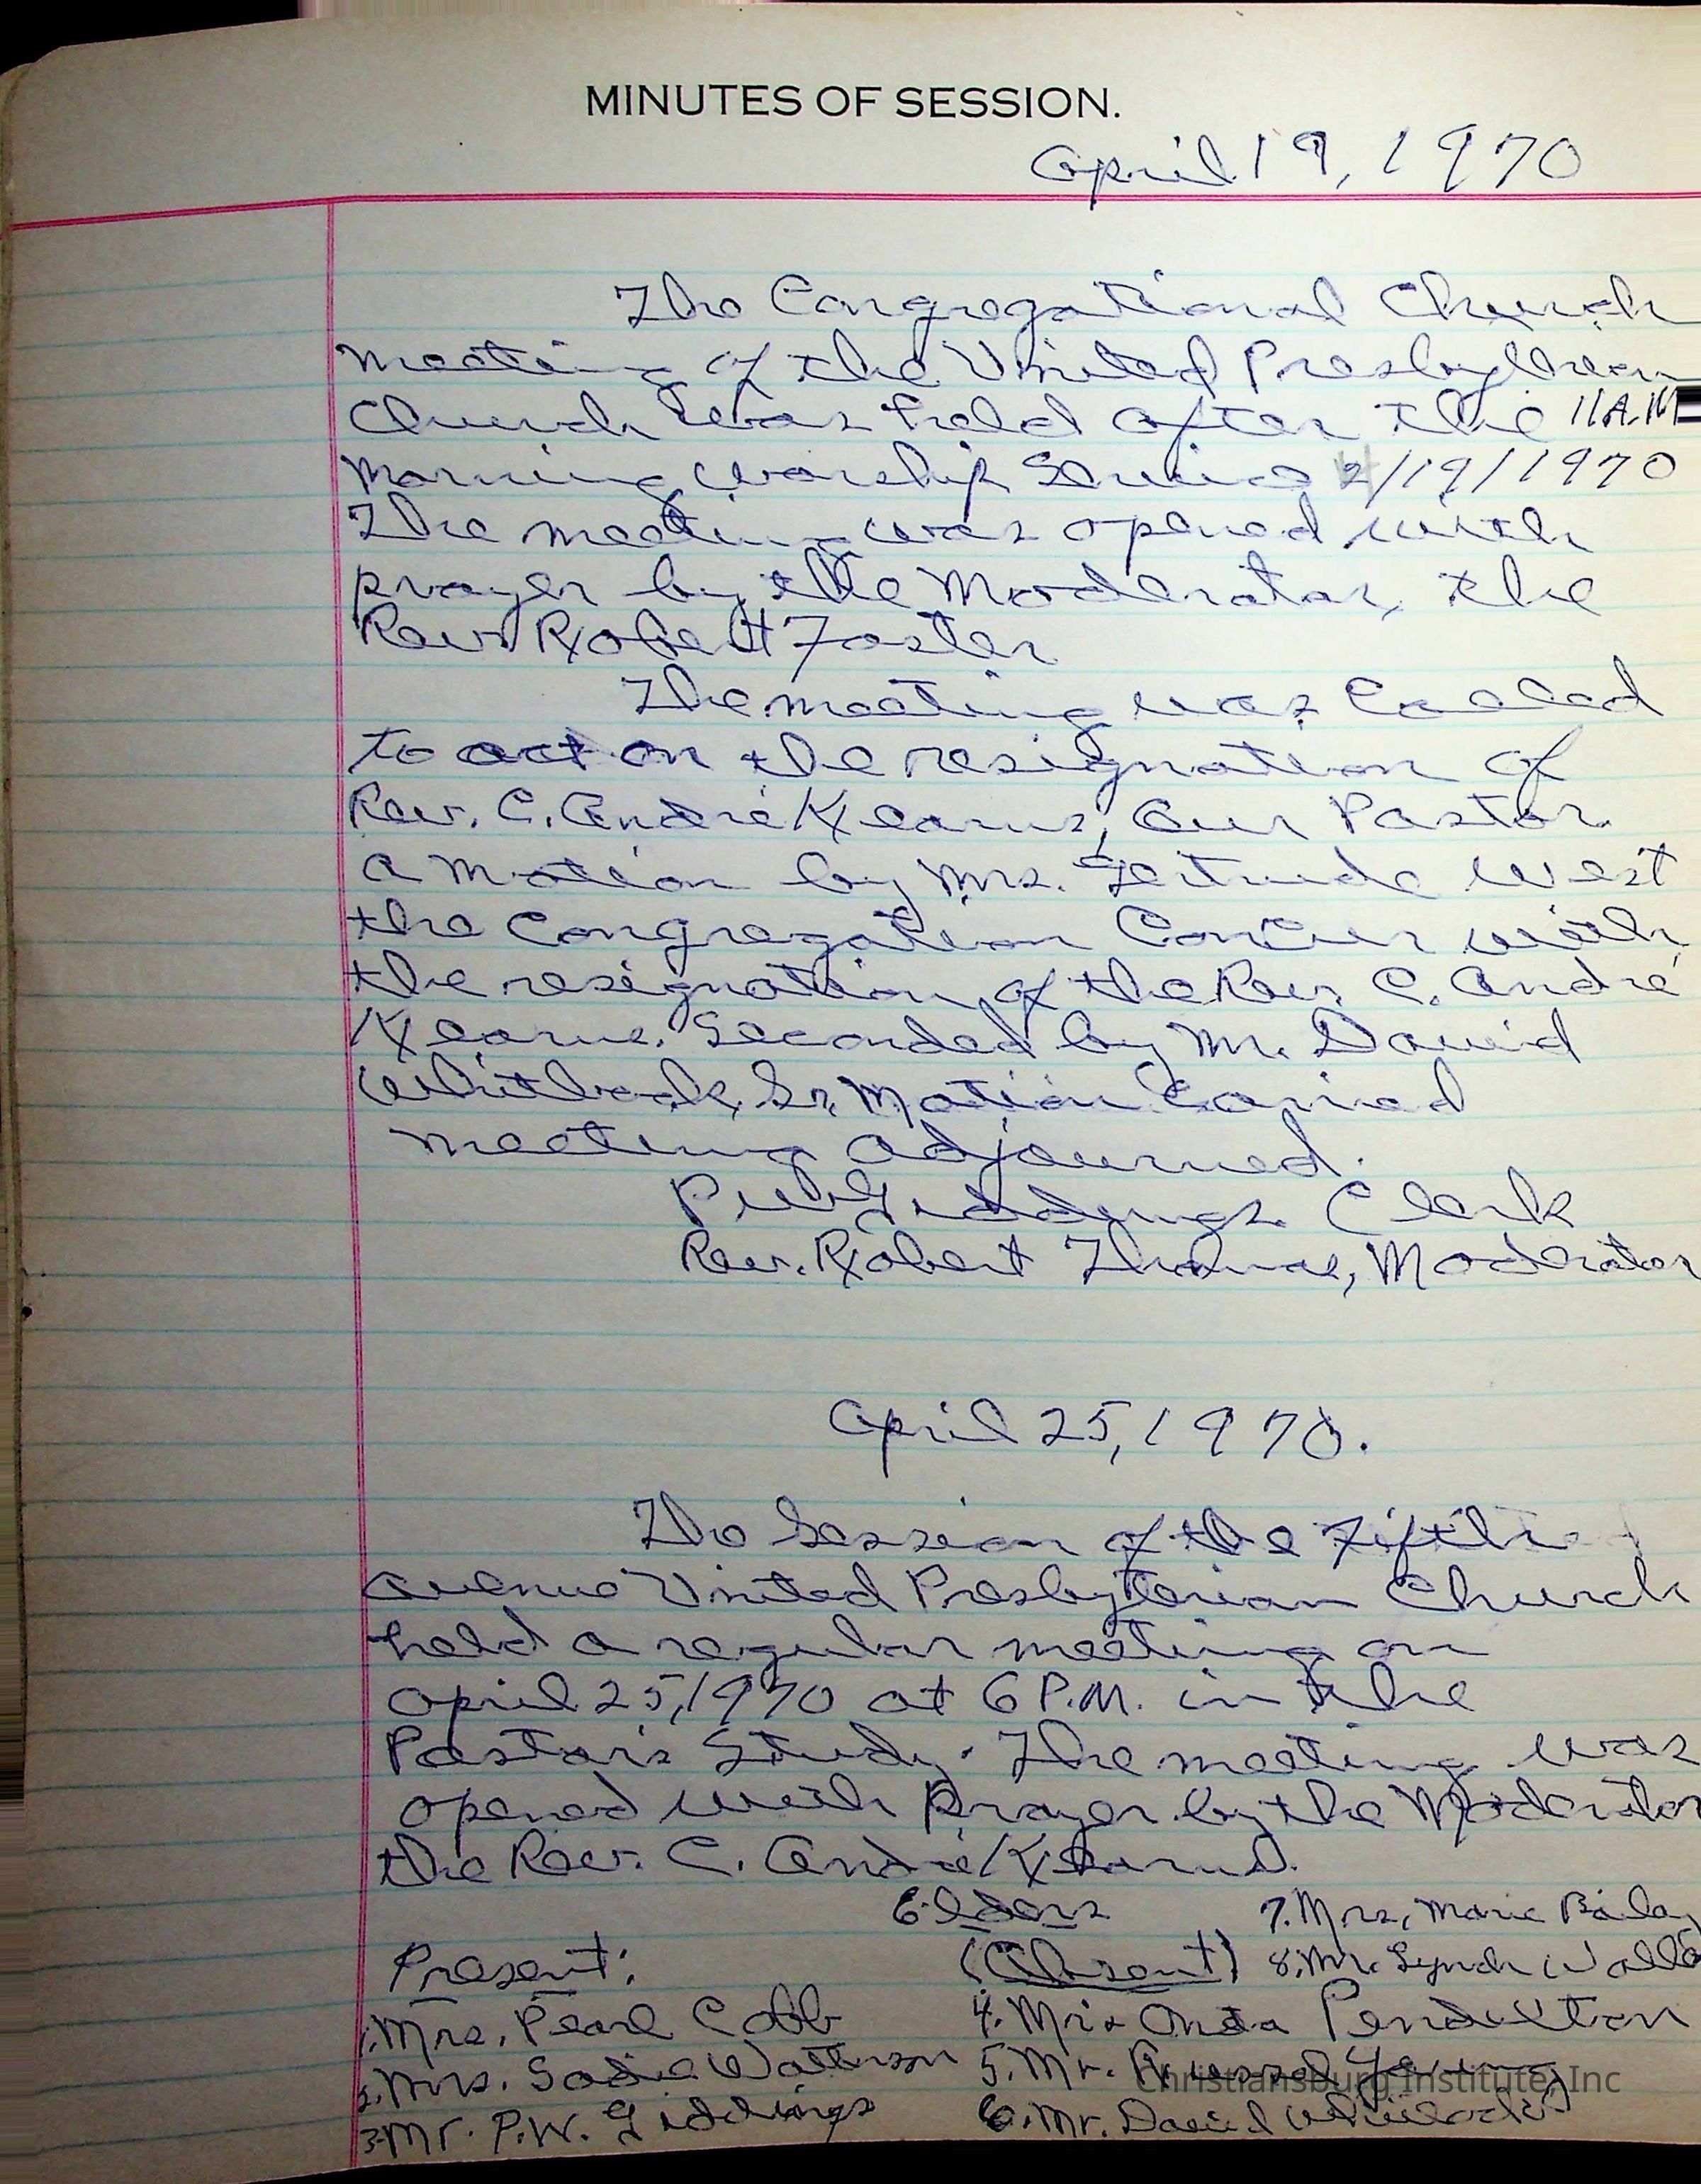 MINUTES OF SESSION.
April 19, 1970
The Congregational Church
meeting of the United Presbyterian
Church was held after the 11 A.M
morning worship Service /19/1970
The meeting was opened with
prayer by the Moderator, the
Rev. Robert Foster
The meeting was Called
to act on the resignation of
Rev. C. André Kearns, Our Pastor.
A motion by Mrs. Gertrude West
the Congregation Concur with
the resignation of the Rev. C. André
Kearns. Seconded by Mr. David
Whitlock, Sr. Motion Carried
meeting adjourned.
P.W. Giddings Clerk
Rev. Robert Thomas, Moderator
April 25, 1970.
The Session of the Fifth
Avenue United Presbyterian Church
held a regular meeting on
April 25, 1970 at 6 P.M. in the
Pastor's Study. The meeting was
opened with Prayer by the Moderator
the Rev. C. André Kearns.
Elders 7. Mrs. Marie Bailey
Present: (Absent) 8. Mr. Lynch
1. Mrs. Pearl Cobb 4. Onda Pendleton
2. Mrs. Sadie 5. Mr. Russel
3. Mr. P.W. Giddings 6. Mr. David Whitlock
Christiansburg Institute, Inc